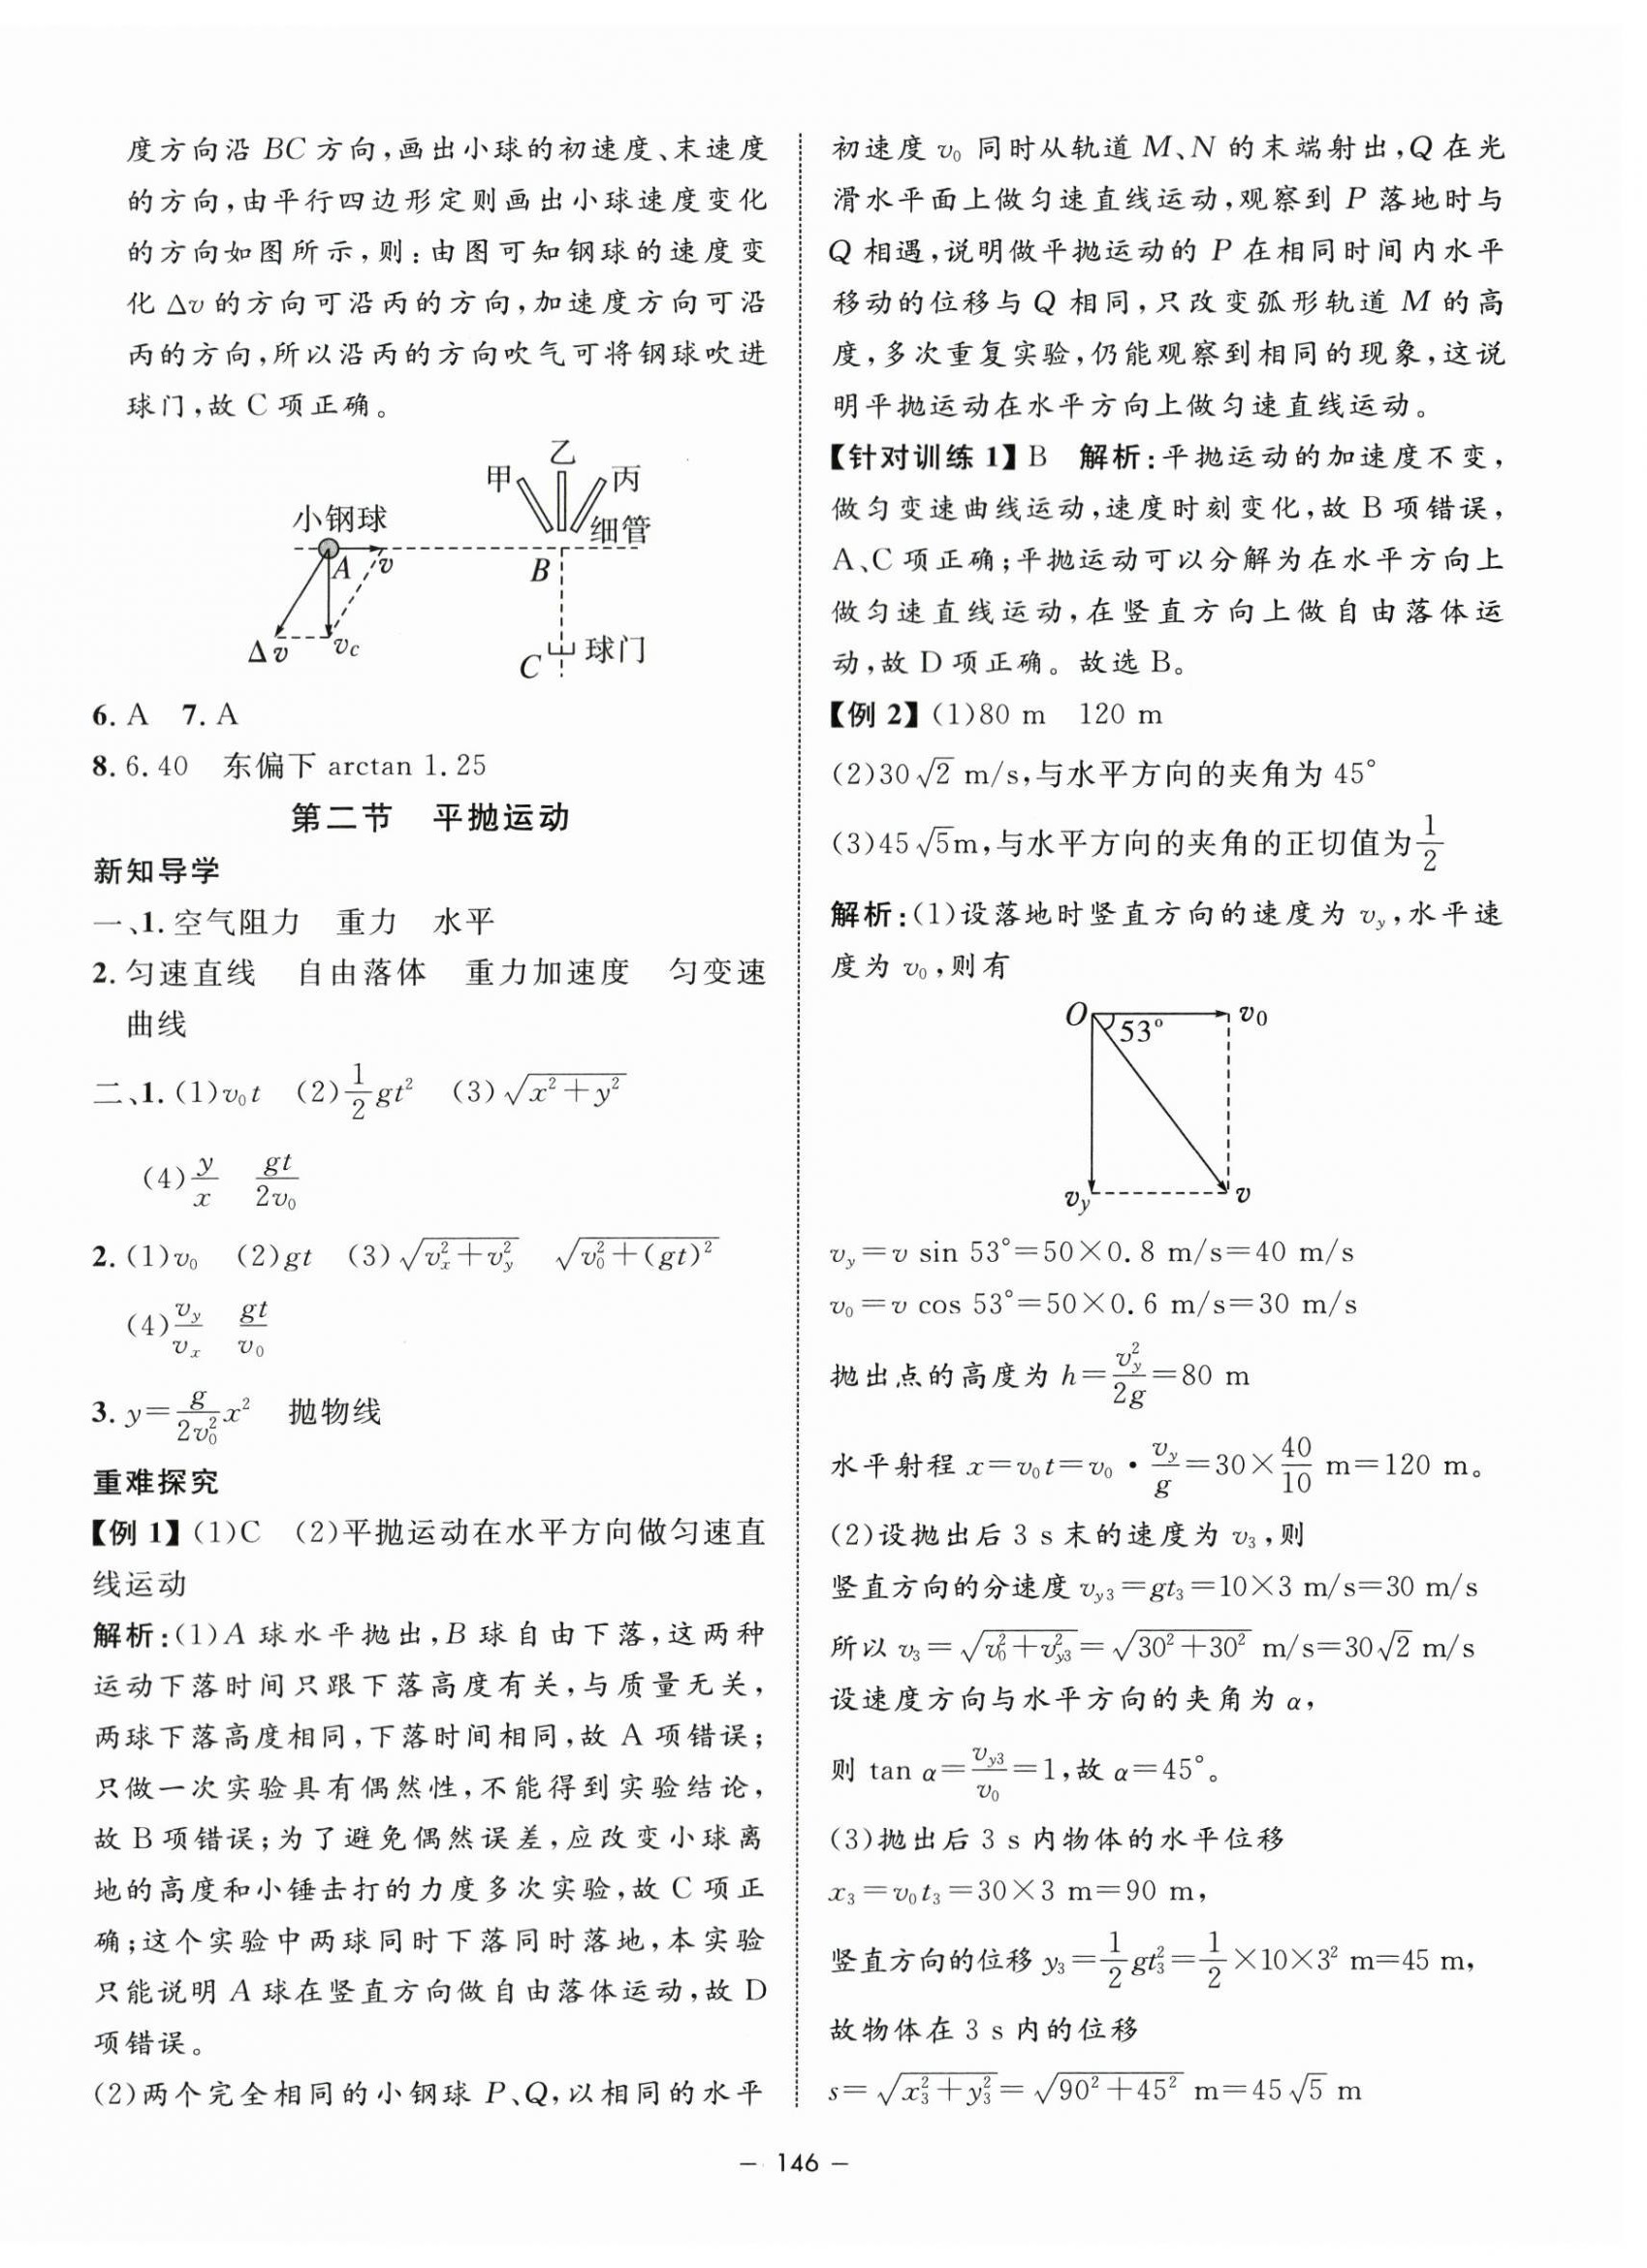 度方向沿 BC 方向,画出小球的初速度、末速度
的方向,由平行四边形定则画出小球速度变化
的方向如图所示,则:由图可知钢球的速度变
化 Δv 的方向可沿丙的方向,加速度方向可沿
丙的方向,所以沿丙的方向吹气可将钢球吹进
球门,故 C 项正确。
乙
甲 丙
小钢球 细管
A v B
Δv v_C C 球门
6. A 7. A
8. 6.40 东偏下 arctan 1.25
第二节 平抛运动
新知导学
一、1. 空气阻力 重力 水平
2. 匀速直线 自由落体 重力加速度 匀变速
曲线
二、1. (1)v₀t (2)1/2 gt² (3)√(x²+y²)
(4)y/x gt/2v₀
2. (1)v₀ (2)gt (3)√(v_x²+v_y²) √(v₀²+(gt)²)
(4)v_y/v_x gt/v₀
3. y=g/2v₀² x² 抛物线
重难探究
【例 1】(1)C (2)平抛运动在水平方向做匀速直
线运动
解析:(1)A 球水平抛出,B 球自由下落,这两种
运动下落时间只跟下落高度有关,与质量无关,
两球下落高度相同,下落时间相同,故 A 项错误;
只做一次实验具有偶然性,不能得到实验结论,
故 B 项错误;为了避免偶然误差,应改变小球离
地的高度和小锤击打的力度多次实验,故 C 项正
确;这个实验中两球同时下落同时落地,本实验
只能说明 A 球在竖直方向做自由落体运动,故 D
项错误。
(2)两个完全相同的小钢球 P、Q,以相同的水平
初速度 v₀ 同时从轨道 M、N 的末端射出,Q 在光
滑水平面上做匀速直线运动,观察到 P 落地时与
Q 相遇,说明做平抛运动的 P 在相同时间内水平
移动的位移与 Q 相同,只改变弧形轨道 M 的高
度,多次重复实验,仍能观察到相同的现象,这说
明平抛运动在水平方向上做匀速直线运动。
【针对训练 1】B 解析:平抛运动的加速度不变,
做匀变速曲线运动,速度时刻变化,故 B 项错误,
A、C 项正确;平抛运动可以分解为在水平方向上
做匀速直线运动,在竖直方向上做自由落体运
动,故 D 项正确。故选 B。
【例 2】(1)80 m 120 m
(2)30√2 m/s,与水平方向的夹角为 45°
(3)45√5m,与水平方向的夹角的正切值为1/2
解析:(1)设落地时竖直方向的速度为 v_y,水平速
度为 v₀,则有
O 53° v₀
v_y v
v_y=v sin 53°=50×0.8 m/s=40 m/s
v₀=v cos 53°=50×0.6 m/s=30 m/s
抛出点的高度为 h=v_y²/2g=80 m
水平射程 x=v₀t=v₀·v_y/g=30×40/10 m=120 m。
(2)设抛出后 3 s 末的速度为 v₃,则
竖直方向的分速度 v_y3=gt₃=10×3 m/s=30 m/s
所以 v₃=√(v₀²+v_y3²)=√(30²+30²) m/s=30√2 m/s
设速度方向与水平方向的夹角为 α,
则 tan α=v_y3/v₀=1,故 α=45°。
(3)抛出后 3 s 内物体的水平位移
x₃=v₀t₃=30×3 m=90 m,
竖直方向的位移 y₃=1/2 gt₃²=1/2×10×3² m=45 m,
故物体在 3 s 内的位移
s=√(x₃²+y₃²)=√(90²+45²) m=45√5 m
— 146 —